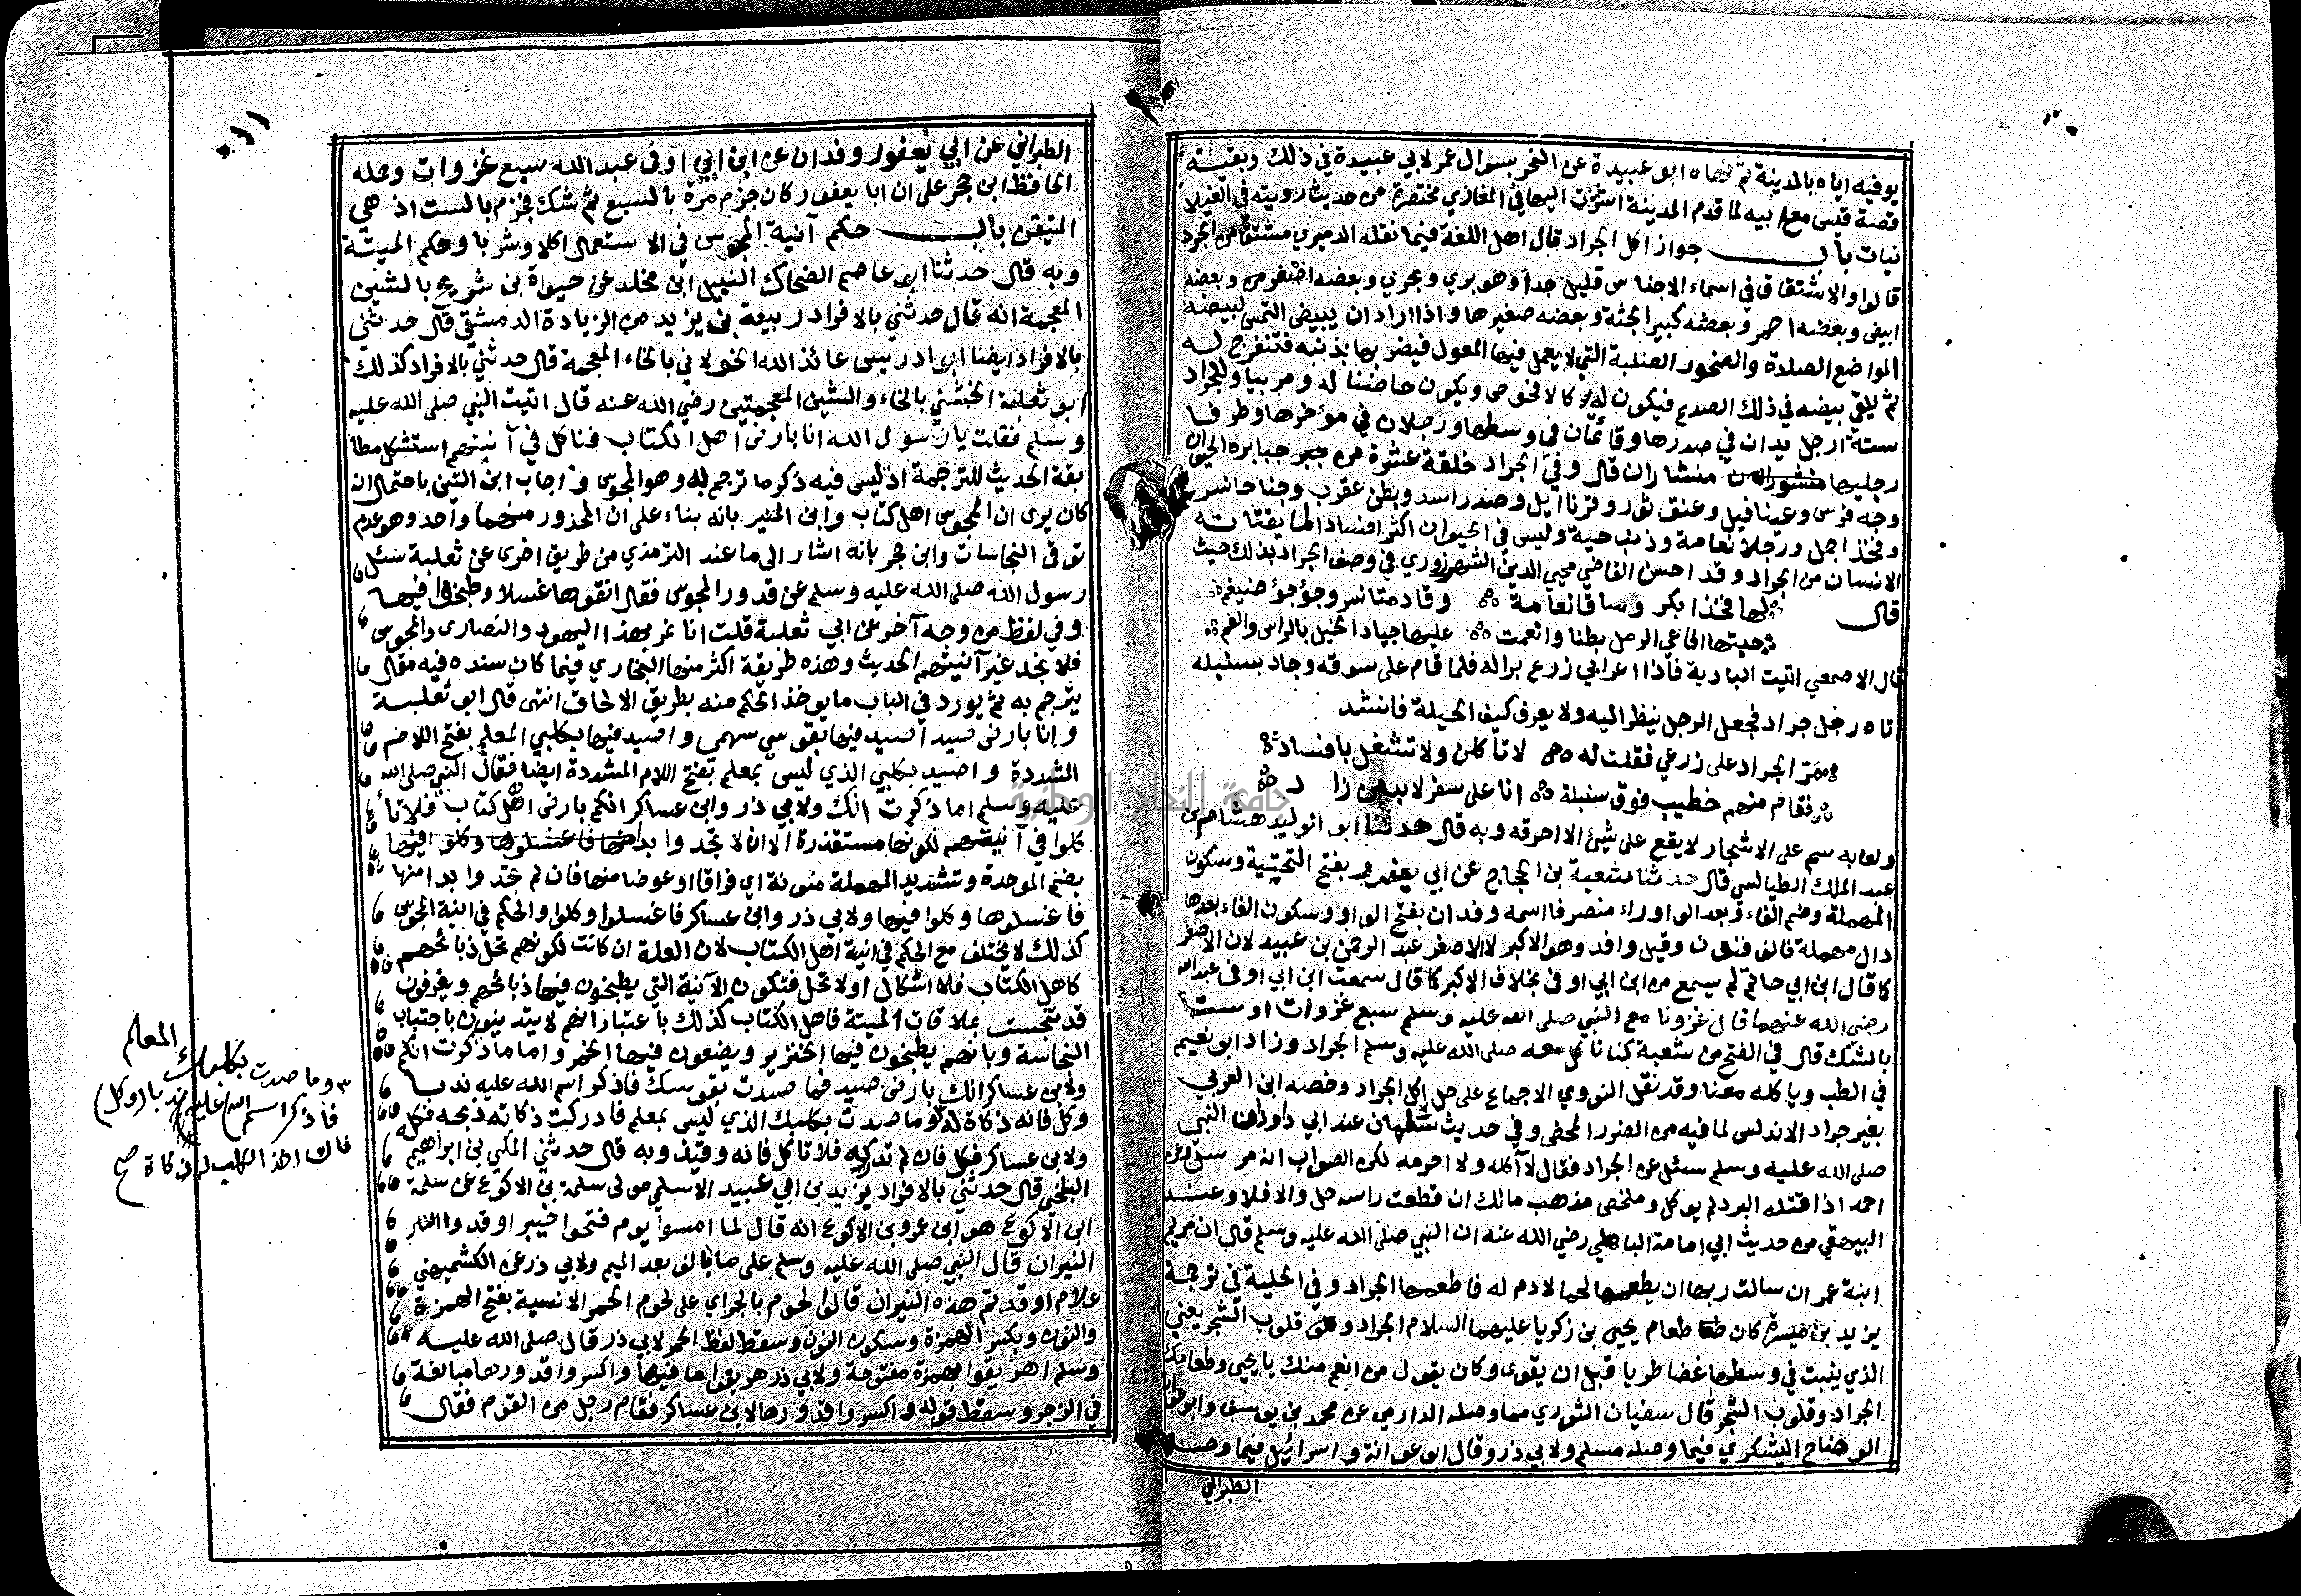 يوفيه اياه بالمدينة ثم نهاه ابو عبيدة عن النحر بسوال عمر لابي عبيدة في ذلك وبقية
قصة قيس مع ابيه لما قدم المدينة اشرت اليها في المغازي مختصرة من حديث رويته في الغيلا
نيات باب جواز اكل الجراد قال اهل اللغة فيما نقله الدميري مشتق من الجرد
قالوا والاشتقاق في اسماء الاجناس قليل جدا وهو بري وبحري وبعضه اصفر وبعضه
ابيض وبعضه احمر وبعضه كبير الجثة وبعضه صغيرها واذا اراد ان يبيض التمس لبيضه
المواضع الصلدة والصخور الصلبة التي لا يعمل فيها المعول فيضربها بذنبه فتنفرج له
ثم يلقي بيضه في ذلك الصدع فيكون له كالافحوص ويكون حاضنا له ومربيا وللجراد
ستة ارجل يدان في صدرها وقائمتان في وسطها ورجلان في مؤخرها وطرفا
رجليها منشاران قال وفي الجراد خلقة عشرة من جبابرة الحيوان
وجه فرس وعينا فيل وعنق ثور وقرنا ايل وصدر اسد وبطن عقرب وجناحا نسر
وفخذا جمل ورجلا نعامة وذنب حية وليس في الحيوان اكثر افسادا لما يقتاته
الانسان من الجراد وقد احسن القاضي محيي الدين الشهرزوري في وصف الجراد بذلك حيث
قال لها فخذا بكر وساقا نعامة وقادمتا نسر وجؤجؤ ضيغم
حبتها افاعي الرمل بطنا وانعمت عليها جياد الخيل بالراس والفم
قال الاصمعي اتيت البادية فاذا اعرابي زرع برا له فلما قام على سوقه وجاد بسنبله
اتاه رجل جراد فجعل الرجل ينظر اليه ولا يعرف كيف الحيلة فانشد
مر الجراد على زرعي فقلت له لا تاكلن ولا تشغل بافساد
فقام منهم خطيب فوق سنبلة انا على سفر لا بد من زاد
ولعابه سم على الاشجار لا يقع على شيئ الا احرقه وبه قال حدثنا ابو الوليد هشام بن
عبد الملك الطيالسي قال حدثنا شعبة بن الحجاج عن ابي يعفور بفتح التحتية وسكون
المهملة وضم الفاء وبعد الواو راء منصرفا اسمه وقدان بفتح الواو وسكون القاف بعدها
دال مهملة فالف فنون وقيل واقد وهو الاكبر لا الاصغر عبد الرحمن بن عبيد لان الاصغر
كما قال ابن ابي حاتم لم يسمع من ابن ابي اوفى بخلاف الاكبر كما قال سمعت ابن ابي اوفى عبد الله
رضي الله عنهما قال غزونا مع النبي صلى الله عليه وسلم سبع غزوات او ست
بالشك قال في الفتح من شعبة كنا ناكل معه صلى الله عليه وسلم الجراد وزاد ابو نعيم
في الطب وياكله معنا وقد نقل النووي الاجماع على حل اكل الجراد وخصه ابن العربي
بغير جراد الاندلس لما فيه من الضرر المحض وفي حديث سلمان عند ابي داود ان النبي
صلى الله عليه وسلم سئل عن الجراد فقال لا آكله ولا احرمه لكن الصواب انه مرسل وعن
احمد اذا قتله البرد لم يوكل وملخص مذهب مالك ان قطعت راسه حل والا فلا وعند
البيهقي من حديث ابي امامة الباهلي رضي الله عنه ان النبي صلى الله عليه وسلم قال ان مريم
ابنة عمران سالت ربها ان يطعمها لحما لا دم له فاطعمها الجراد وفي الحلية في ترجمة
يزيد بن ميسرة كان طعام يحيى بن زكريا عليهما السلام الجراد وقلوب الشجر يعني
الذي ينبت في وسطها غضا طريا قبل ان يقوى وكان يقول من انعم منك يا يحيى وطعامك
الجراد وقلوب الشجر قال سفيان الثوري مما وصله الدارمي عن محمد بن يوسف وابو عوانة
الوضاح اليشكري فيما وصله مسلم ولابي ذر وقال ابو عوانة واسرائيل فيما وصله
الطبراني
الطبراني عن ابي يعفور وقدان عن ابن ابي اوفى عبد الله سبع غزوات وحمله
الحافظ ابن حجر على ان ابا يعفور كان جزم مرة بالسبع ثم شك فجزم بالست اذ هي
المتيقن باب حكم آنية المجوس في الاستعمال اكلا وشربا وحكم الميتة
وبه قال حدثنا ابو عاصم الضحاك النبيل ابن مخلد عن حيوة بن شريح بالشين
المعجمة انه قال حدثني بالافراد ربيعة بن يزيد من الزيادة الدمشقي قال حدثني
بالافراد ايضا ابو ادريس عائذ الله الخولاني بالخاء المعجمة قال حدثني بالافراد كذلك
ابو ثعلبة الخشني بالخاء والشين المعجمتين رضي الله عنه قال اتيت النبي صلى الله عليه
وسلم فقلت يا رسول الله انا بارض اهل الكتاب فناكل في آنيتهم استشكل مطا
بقة الحديث للترجمة اذ ليس فيه ذكر ما ترجم له وهو المجوس واجاب ابن التين باحتمال انه
كان يرى ان المجوس اهل كتاب وابن المنير بانه بناء على ان المحذور منهما واحد وهو عدم
توقي النجاسات وابن حجر بانه اشار الى ما عند الترمذي من طريق اخرى عن ثعلبة سئل
رسول الله صلى الله عليه وسلم عن قدور المجوس فقال انقوها غسلا واطبخوا فيها
وفي لفظ من وجه آخر عن ابي ثعلبة قلت انا نمر بهذا اليهود والنصارى والمجوس
فلا نجد غير آنيتهم الحديث وهذه طريقة اكثر منها البخاري فيما كان سنده فيه مقال
يترجم به ثم يورد في الباب ما يوخذ الحكم منه بطريق الالحاق انتهى قال ابو ثعلبة
وانا بارض صيد اصيد فيها بقوسي سهمي واصيد فيها بكلبي المعلم بفتح اللام
المشددة واصيد بكلبي الذي ليس بمعلم بفتح اللام المشددة ايضا فقال النبي صلى الله
عليه وسلم اما ذكرت انك ولابي ذر وابن عساكر انكم بارض اهل كتاب فلا تا
كلوا في آنيتهم لكونها مستقذرة الا ان لا تجدوا بدا
بضم الموحدة وتشديد المهملة منونة اي فراقا او عوضا منها فان لم تجدوا بدا منها
فاغسلوها وكلوا فيها ولابي ذر وابن عساكر فاغسلوا وكلوا والحكم في انية المجوس
كذلك لا يختلف مع الحكم في انية اهل الكتاب لان العلة ان كانت لكونهم تحل ذبائحهم
كاهل الكتاب فلا اشكال او لا تحل فتكون الآنية التي يطبخون فيها ذبائحهم ويغرفون
قد تنجست بملاقات الميتة فاهل الكتاب كذلك باعتبار انهم لا يتدينون باجتناب
النجاسة وبانهم يطبخون فيها الخنزير ويضعون فيها الخمر واما ما ذكرت انكم
ولابن عساكر انك بارض صيد فما صدت بقوسك فاذكر اسم الله عليه ندبا
وكل فانه ذكاة له وما صدت بكلبك الذي ليس بمعلم فادركت ذكاته ذبحه فكله
ولابن عساكر فكل فان لم تدركه فلا تاكل فانه وقيذ وبه قال حدثني المكي بن ابراهيم
البلخي قال حدثني بالافراد يزيد بن ابي عبيد الاسلمي مولى سلمة بن الاكوع عن سلمة
ابن الاكوع هو ابن عمرو بن الاكوع انه قال لما امسوا يوم فتحوا خيبر اوقدوا
النيران قال النبي صلى الله عليه وسلم على ما بالف بعد الميم ولابي ذر عن الكشميهني
علام اوقدتم هذه النيران قالوا لحوم بالجر اي على لحوم الحمر الانسية بفتح الهمزة
والنون وبكسر الهمزة وسكون النون وسقط لفظ الحمر لابي ذر قال صلى الله عليه
وسلم اهريقوا بهمزة مفتوحة ولابي ذر هريقوا ما فيها واكسروا قدورها مبالغة
في الزجر وسقط قوله واكسروا قدورها لابن عساكر فقام رجل من القوم فقال
وما صدت بكلبك المعلم
فاذكر اسم الله عليه ندبا (وكل)
فان اخذ الكلب له ذكاة صح